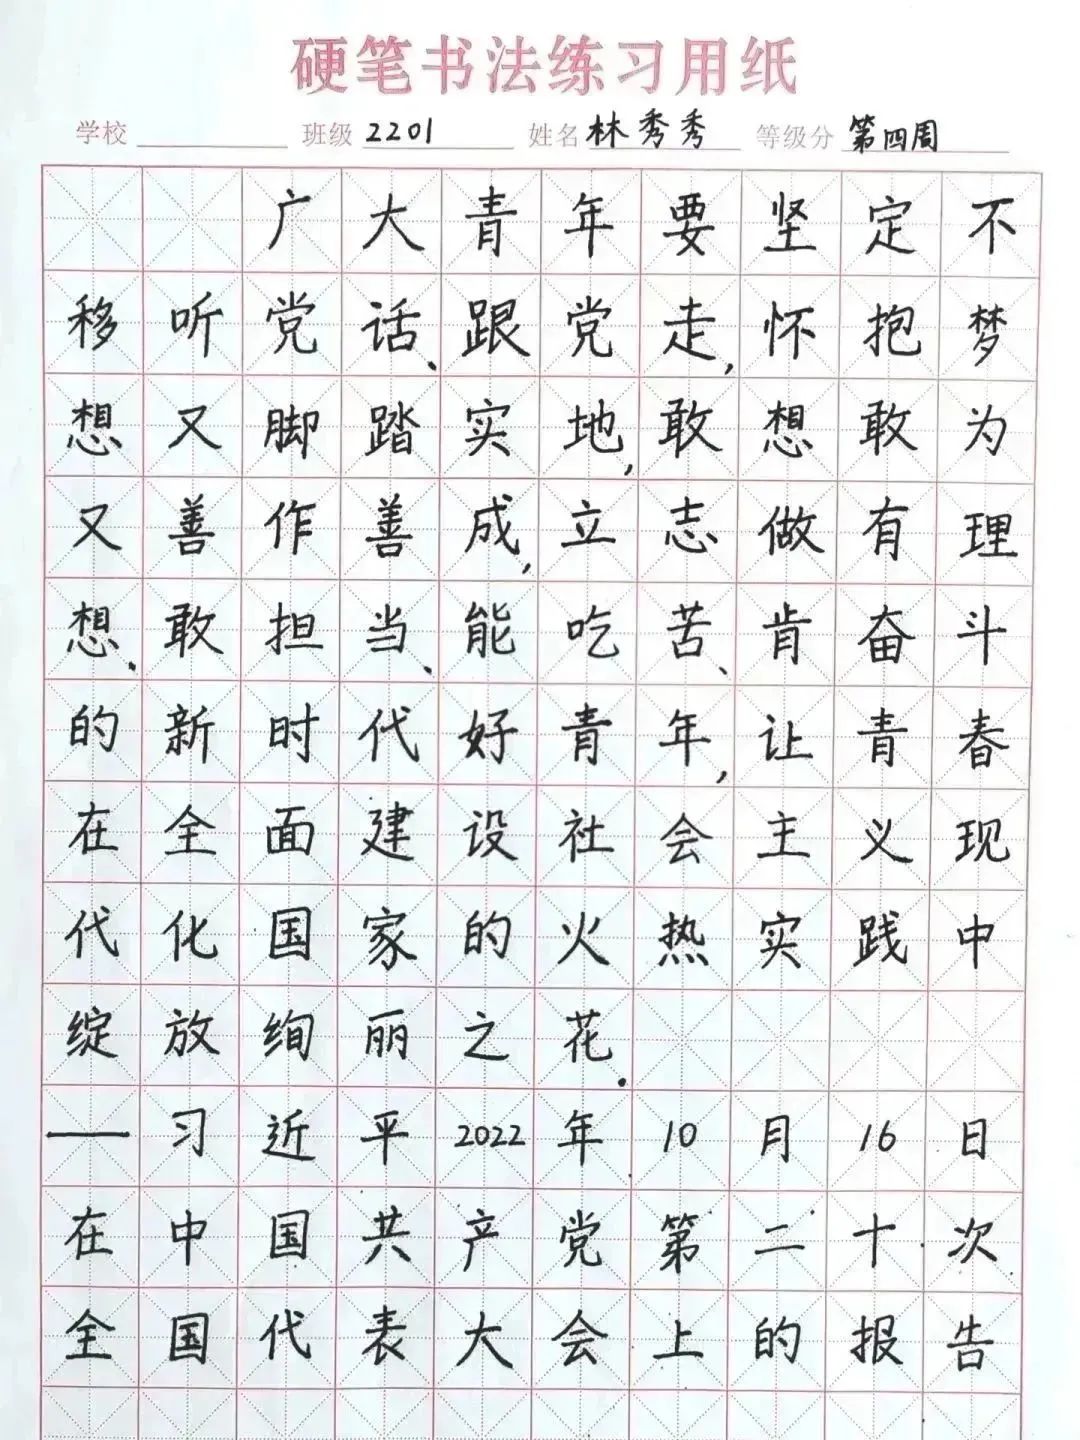 硬笔书法练习用纸
学校 班级 2201 姓名 林秀秀 等级分 第四周
广大青年要坚定不
移听党话、跟党走,怀抱梦
想又脚踏实地,敢想敢为
又善作善成,立志做有理
想、敢担当、能吃苦、肯奋斗
的新时代好青年,让青春
在全面建设社会主义现
代化国家的火热实践中
绽放绚丽之花.
——习近平2022年10月16日
在中国共产党第二十次
全国代表大会上的报告